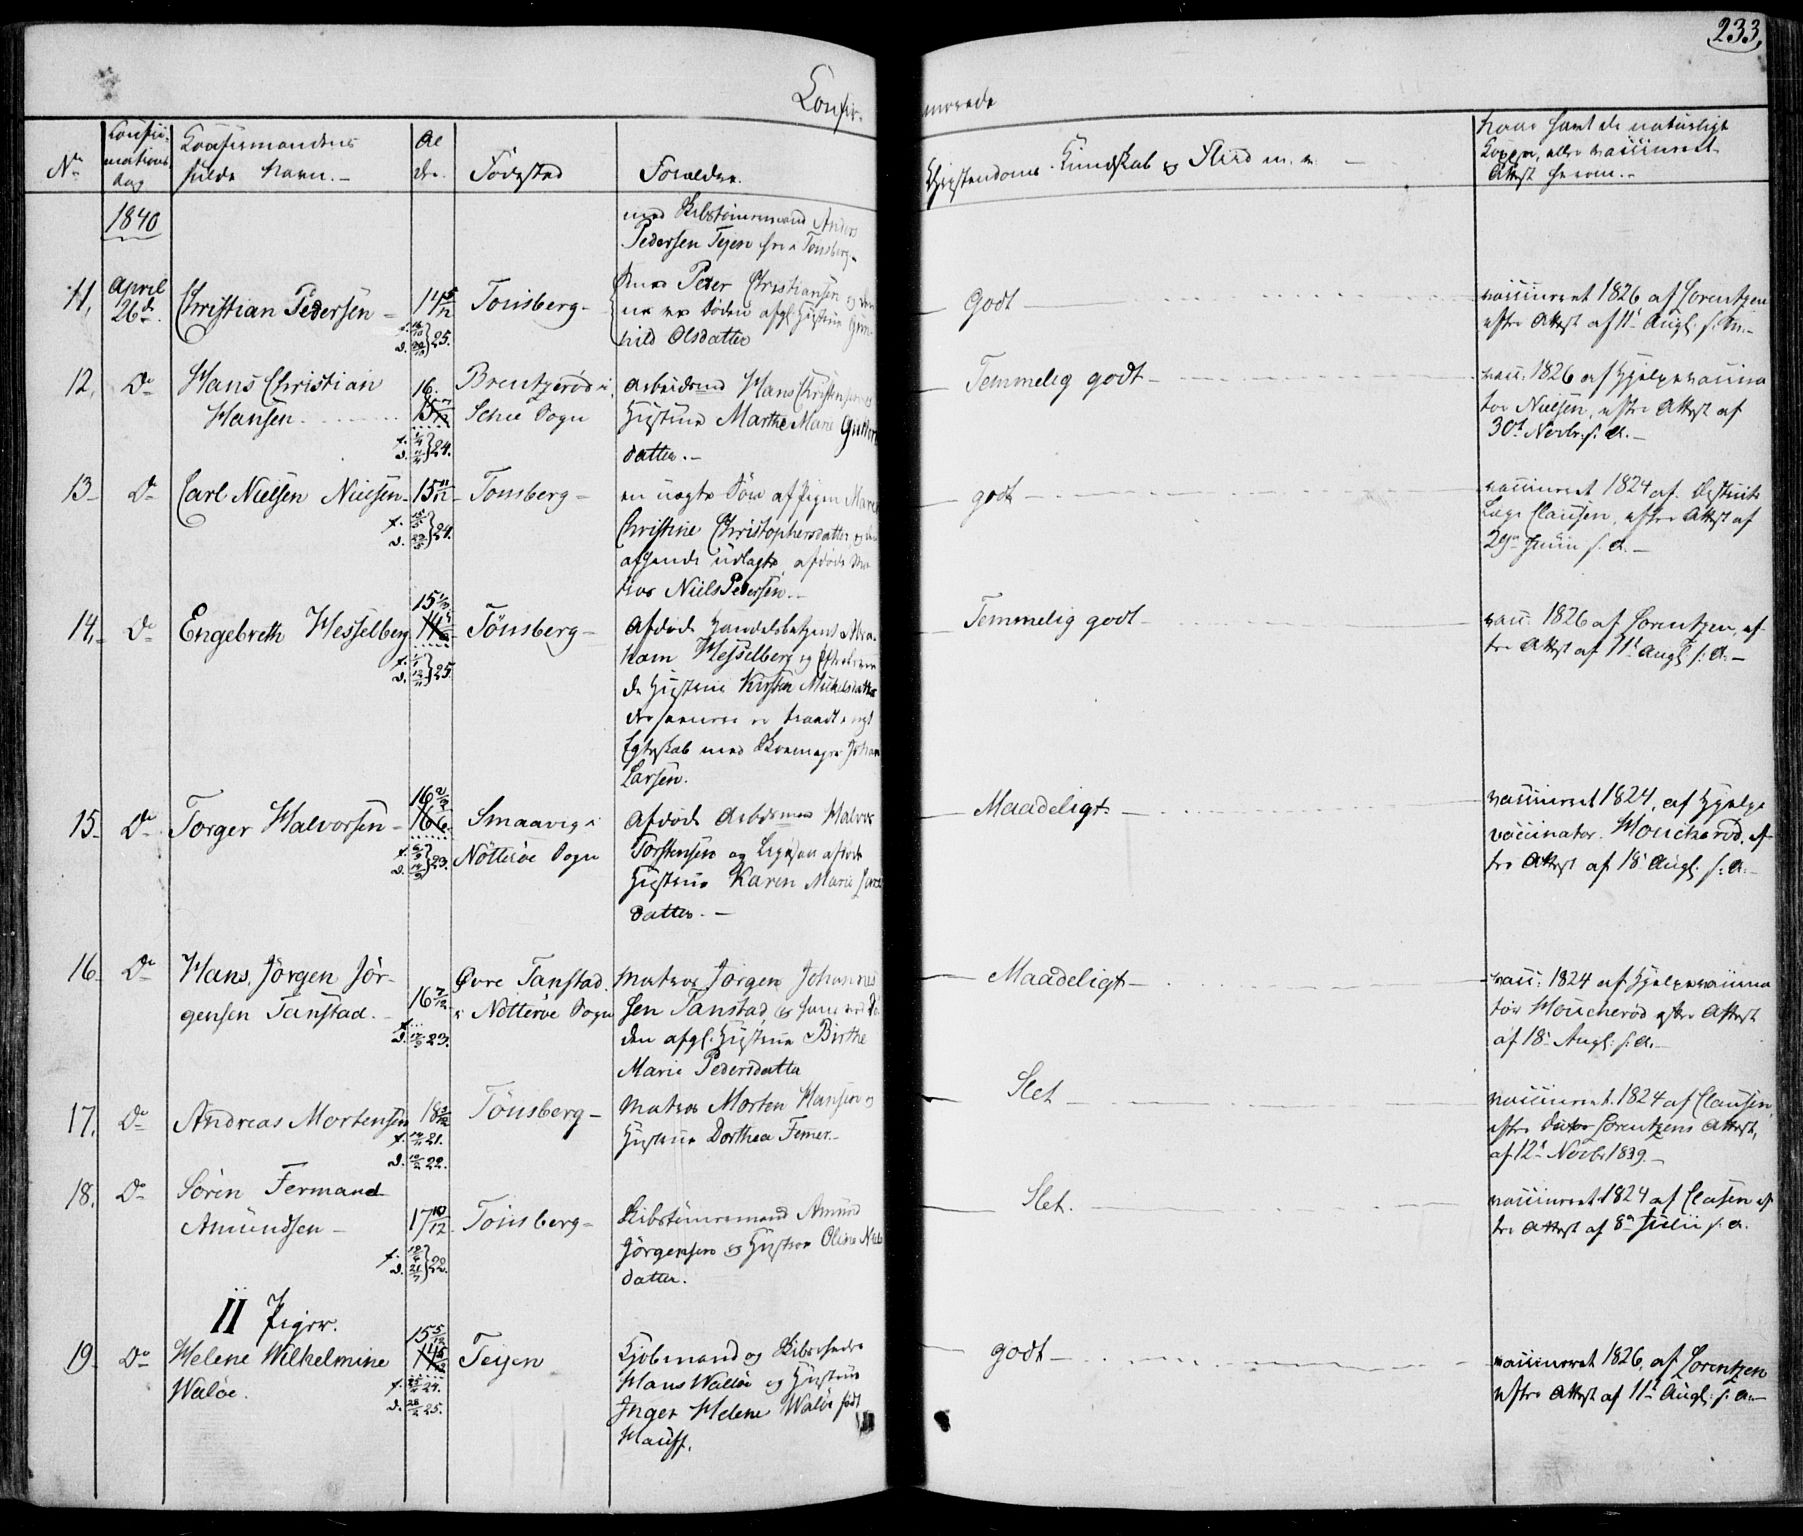 233,
Confir- merede
No
Confir-
mations
dag
Confirmandens
fulde Navn. -
Al
der.
Fødested
Forældre.
Christendoms Kundskab og Flid m. v. -
havt de naturlige
Kopper, eller vaccineret
Attest herom. -
1840
med Skibstømmermand Anders
Pedersen Teyen fra Tønsberg -
11,
April
26de
Christian Pedersen -
14 5/12
25.
Tonsberg -
Peter Christiansen og
ved Døden afg. Hustrue Gun-
hild Olsdatter
Godt -
vaccineret 1826 af Lorentzen
efter Attest af 11te Augl. s. A. -
12,
Do
Hans Christian
Hansen
16.
24.
Brentzerød i
Sems Sogn
Arbeidsmd Hans Christensen og
Hustrue Marthe Marie
datter. -
Temmelig godt -
vacc. 1826 af Hjelpevaccina
tor Nielsen, efter Attest af
30te Novbr. s. A. -
13 -
Do
Carl Nielsen Nielsen -
15 11/12
24.
Tonsberg -
en uægte Søn af Pigen Maren
Christine Christophersdatter og
afgende udlagte, afdøde Ma-
tros Niels Pedersen. -
godt -
vaccineret 1824 af Districts
Læge Clausen, efter Attest af
29de Junii s. A. -
14, -
Do
Engebreth Hesselberg
15
25
Tönsberg -
Afdøde Handelsbetjent Abra-
ham Hesselberg og Efterleven-
de Hustrue Kirsten Mickelsdatter
der senere er traadt i nyt
Egteskab med Skomager Johan
Larsen.
Temmelig godt -
vacc. 1826 af Lorentzen, ef-
ter Attest af 11te Augl. s. A. -
15 -
Do
Torger Halvorsen -
16
23.
Smaavig i
Nötterøe Sogn
Afdøde Arbeidsmd Halvor
Torstensen og Ligesaa afdøde
Hustrue Karen Marie
datter. -
Maadeligt -
vaccineret 1824, af Hjelpe
vaccinator Houcherød, ef-
ter Attest af 18 Augl. s. A. -
16 -
Do
Hans Jørgen Jör-
gensen Tanstad. -
16 7/12
23.
Øvre Tanstad
i Nötterøe Sogn
Matros Jørgen Johannes
sen Tanstad, og hans ved Dø-
den afgl. Hustrue Birthe
Marie Pedersdatter
Maadeligt -
vacc. 1824 af Hjelpevaccina
tor Houcherød efter Attest
af 18 Augl. s. A. -
17.
Do
Andreas Mortensen
18
21.
22.
Tönsberg -
Matros Morten Hansen og
Hustrue Dorthea Femer -
Slet -
vaccineret 1824 af Clausen,
efter Doctor Lorentzens Attest,
af 12te Novbr 1839. -
18.
Do
Sören Fermand
Amundsen -
17 10/12
22.
Tönsberg -
Skibstömmermand Amund
Jörgensen og Hustrue Oline Niels
datter.
Slet.
vaccineret 1824 af Clasen ef-
ter Attest af 8de Julii s. A.
II Piger.
19 -
Do
Helene Wilhelmine
Waløe.
15 5/12
24.
25.
Teyen
Kjøbmand og Skibsrheder
Hans Waløe og Hustrue
Inger Helene Waløe født
Hauff.
godt -
vaccineret 1826, af Lorentzen
efter Attest af 11te Augl. s. A. -